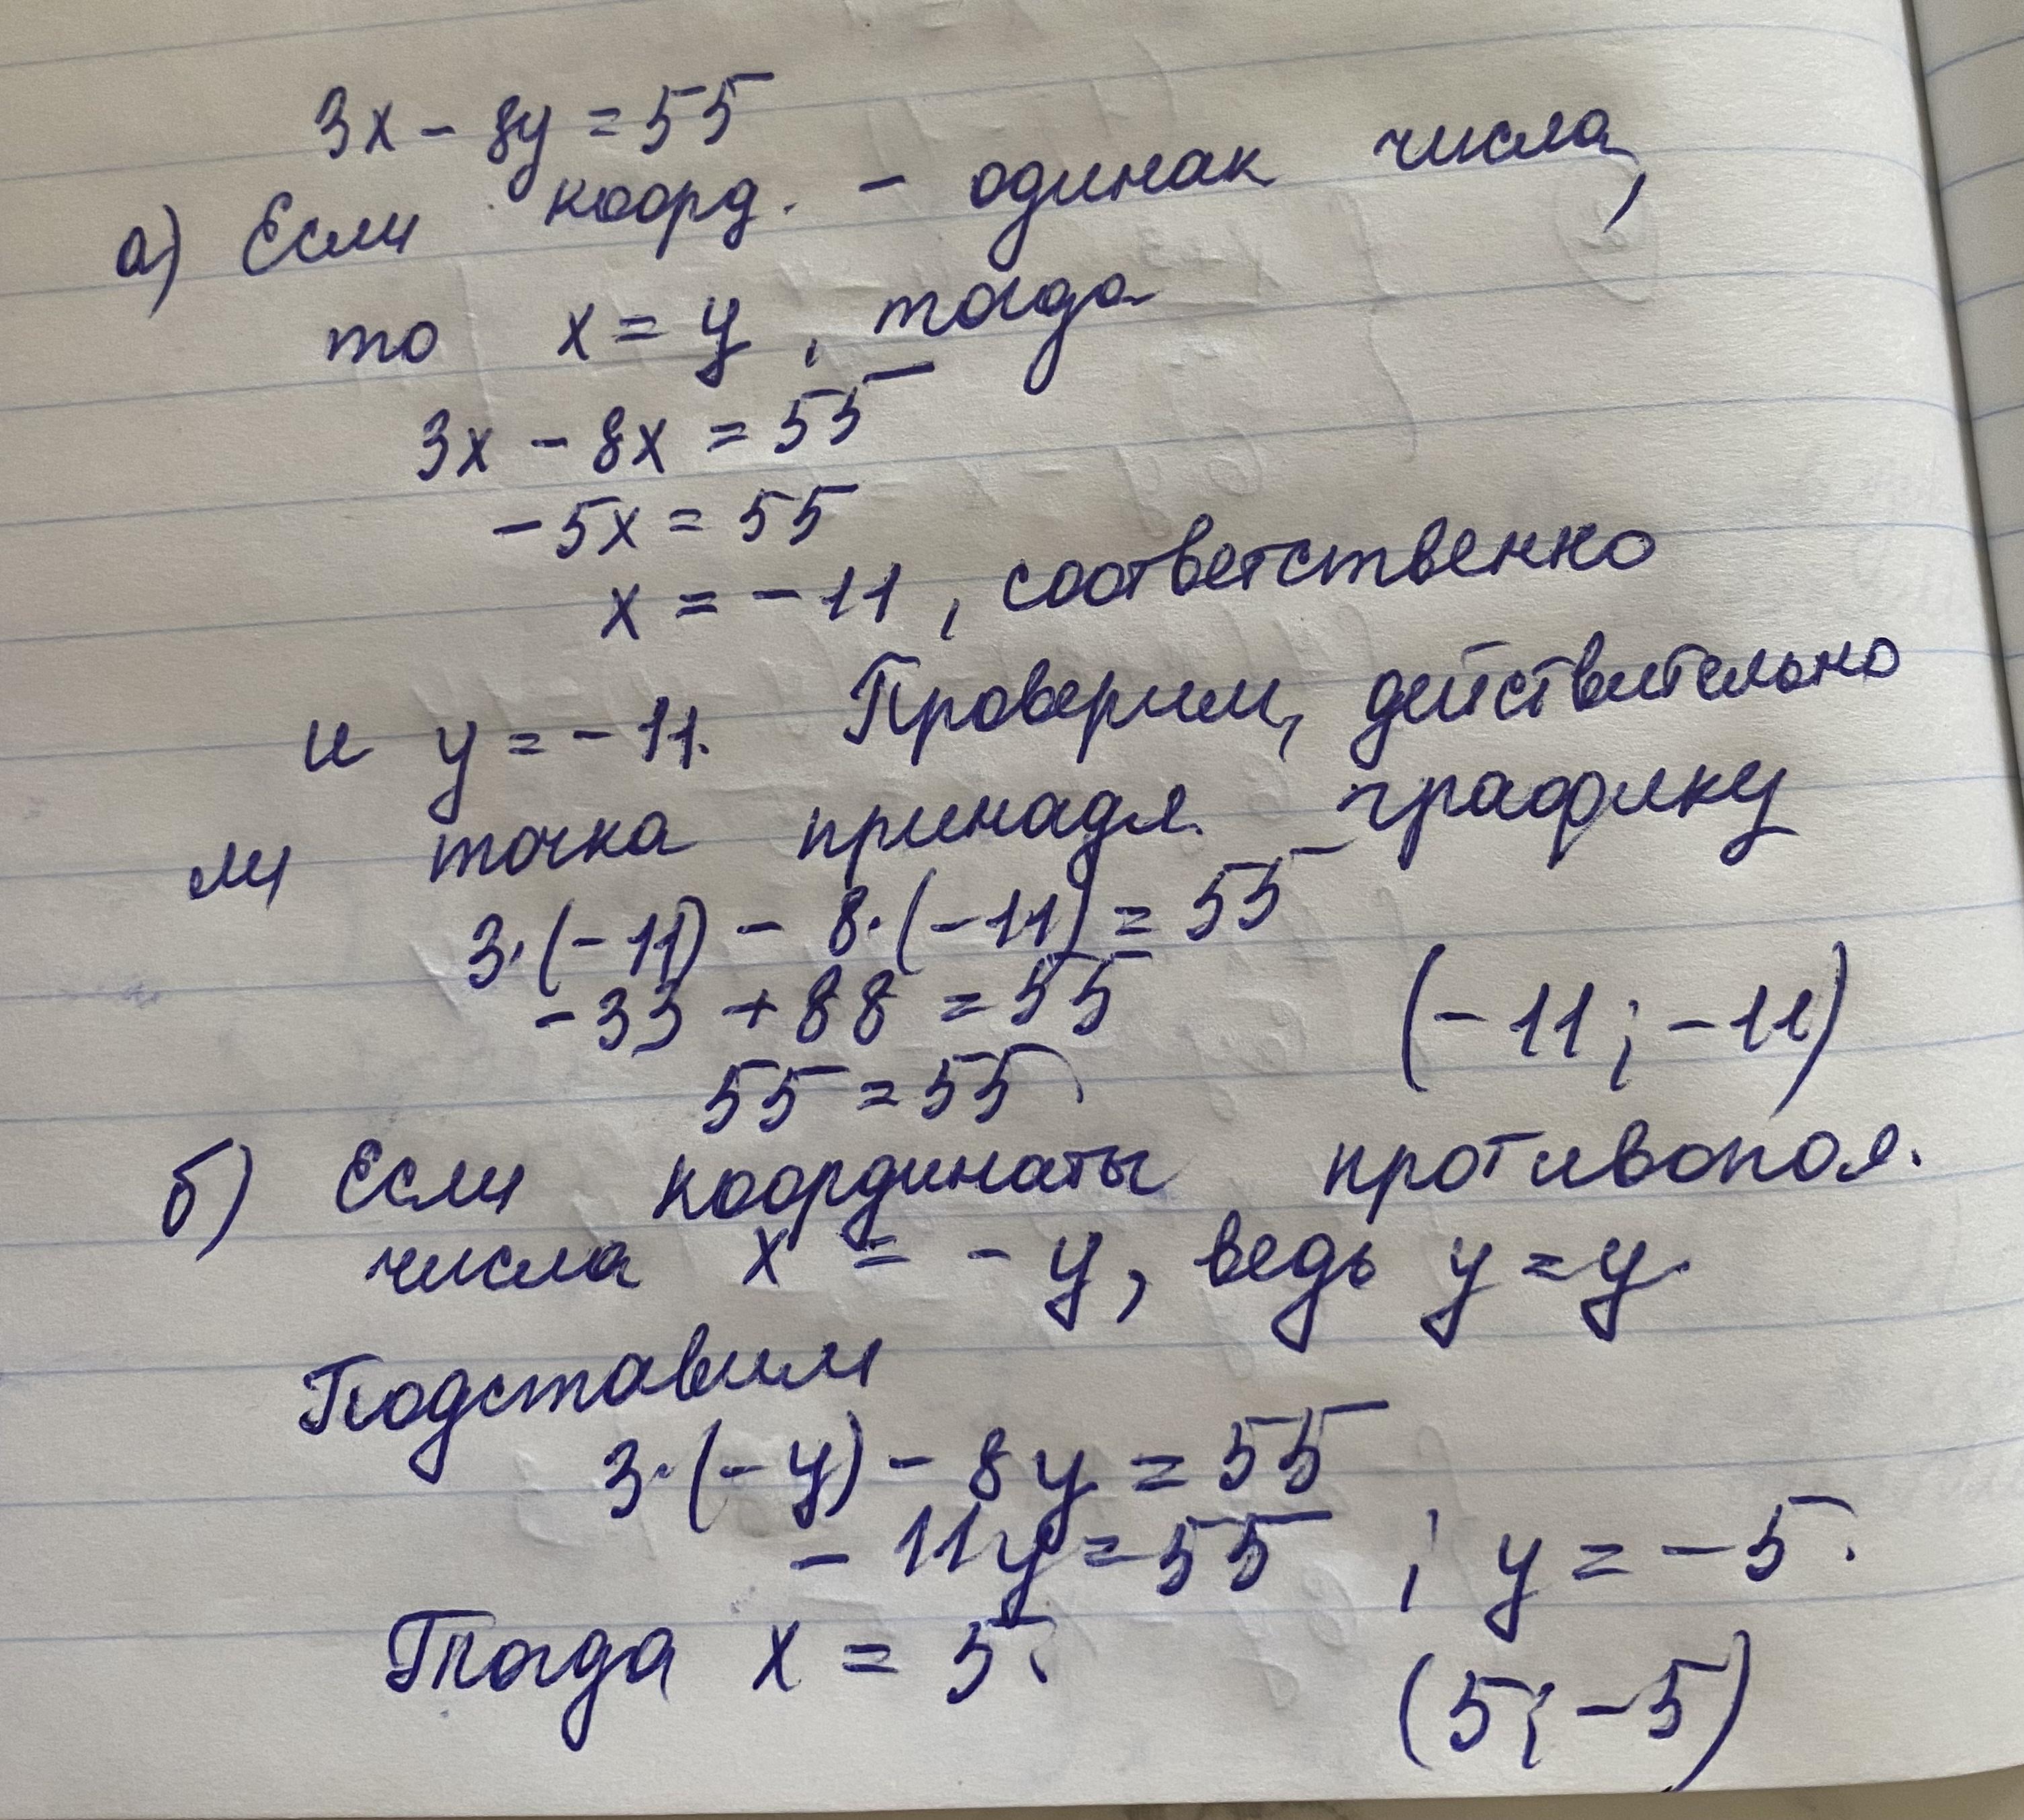 3x - 8y = 55
а) Если коорд. - одинак числа,
то x = y, тогда
3x - 8x = 55
-5x = 55
x = -11, соответственно
и y = -11. Проверим, действительно
ли точка принадл. графику
3·(-11) - 8·(-11) = 55
-33 + 88 = 55 (-11; -11)
55 = 55
б) Если координаты противопол.
числа x = -y, ведь y = y.
Подставим
3·(-y) - 8y = 55
-11y = 55 ; y = -5.
Тогда x = 5. (5; -5)